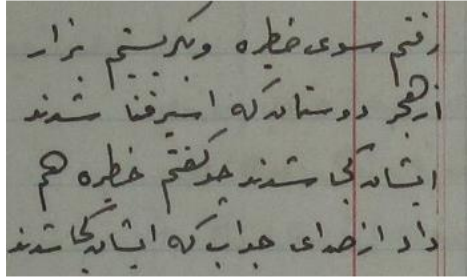 رفتم سوی خطیره وبگریستم بزار
از هجر دوستان که اسیر فنا شدند
ایشان کجا شدند چو گفتم خطیره هم
داد از صدای جواب که ایشان کجا شدند